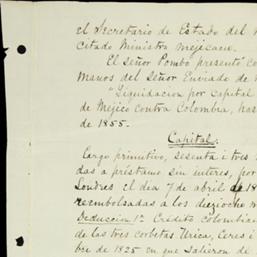 el Secretario de Estado del
citado Ministro mejicano.
El Señor Pombo presentó
manos del Señor Enviado de
"Liquidacion por Capital
de Méjico contra Colombia, has
de 1855.
Capital.
Cargo primitivo, sesenta i tres
das a préstamo sin interes, por
Londres el dia 7 de abril de 18
reembolsadas a los dieziocho m
Deduccion 1ª Crédito colombian
de las tres corbetas Urica, Ceres i
bre de 1825 en que salieron de